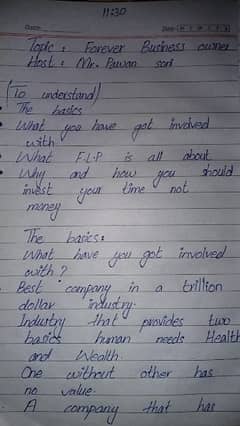 11:30
Date
Topic : Forever Business owner
Host : Mr. Pawan soni
(To understand)
• The basics
• What you have got involved
with
• What F.L.P is all about
• Why and how you should
invest your time not
money
The basics:
What have you got involved
with ?
Best company in a trillion
dollar industry.
Industry that provides two
basics human needs Health
and Wealth.
One without other has
no value.
A company that has